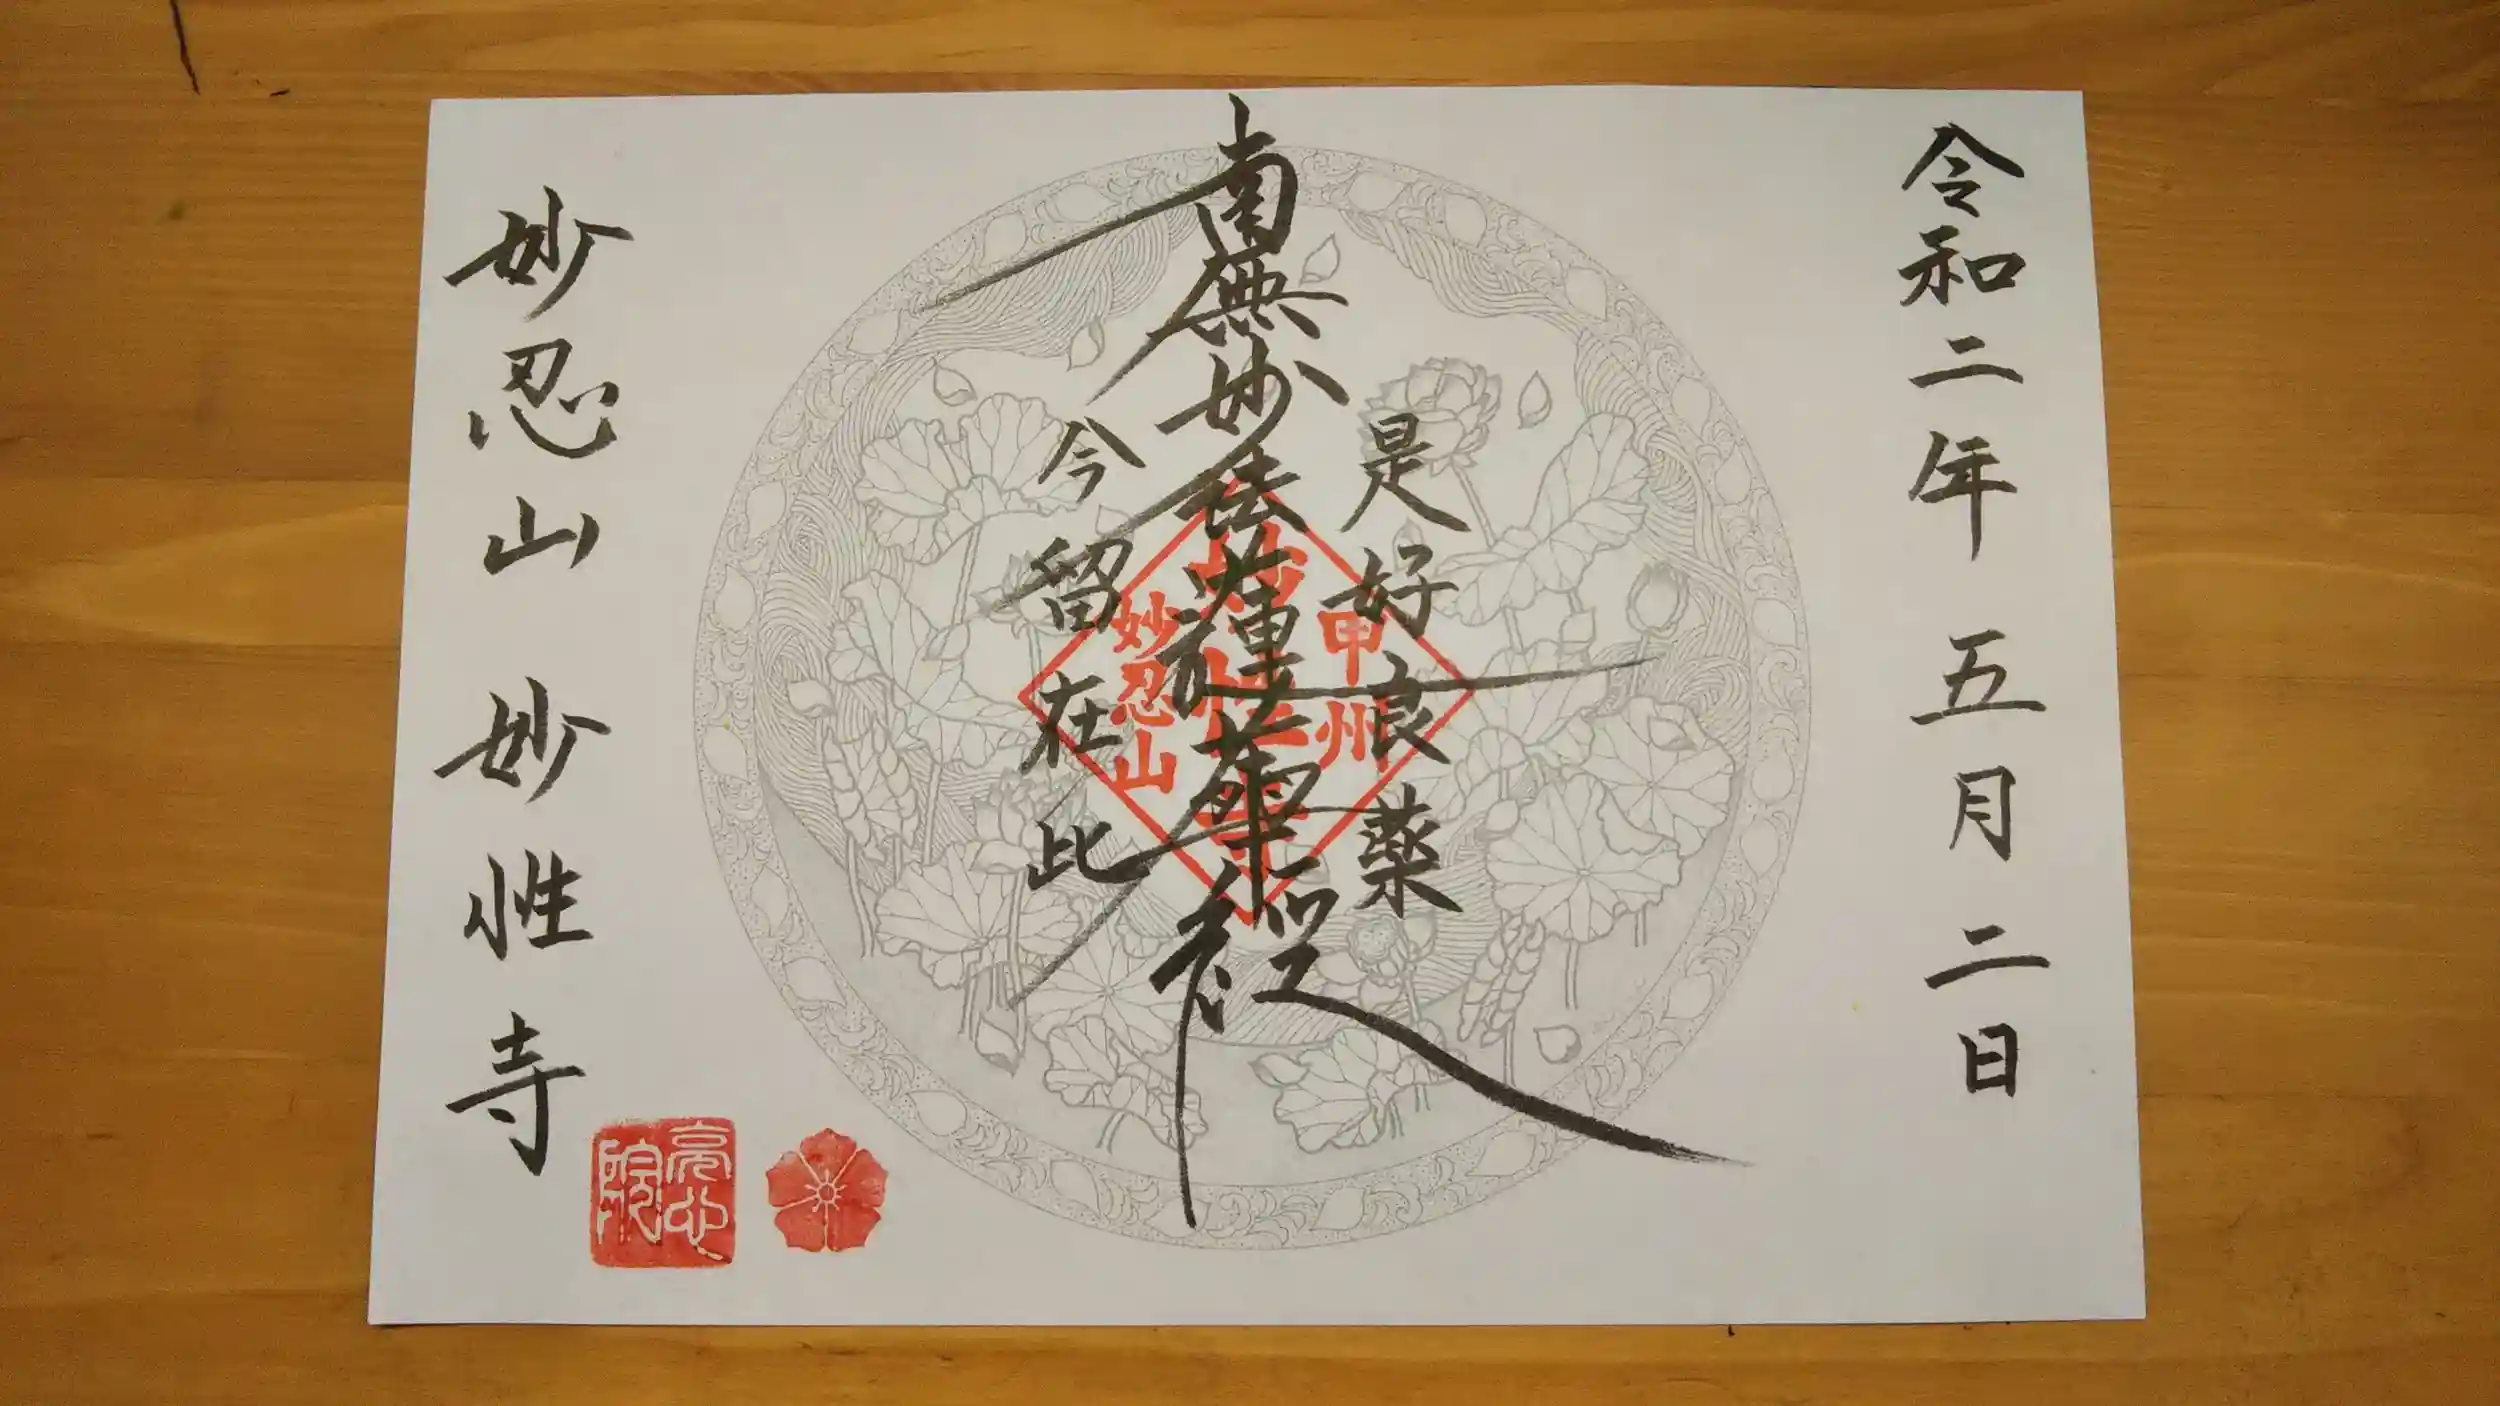 令和二年 五月二日
是好良薬
南無妙法蓮華経
今留在此
妙忍山 妙性寺
甲州
妙性寺
妙忍山